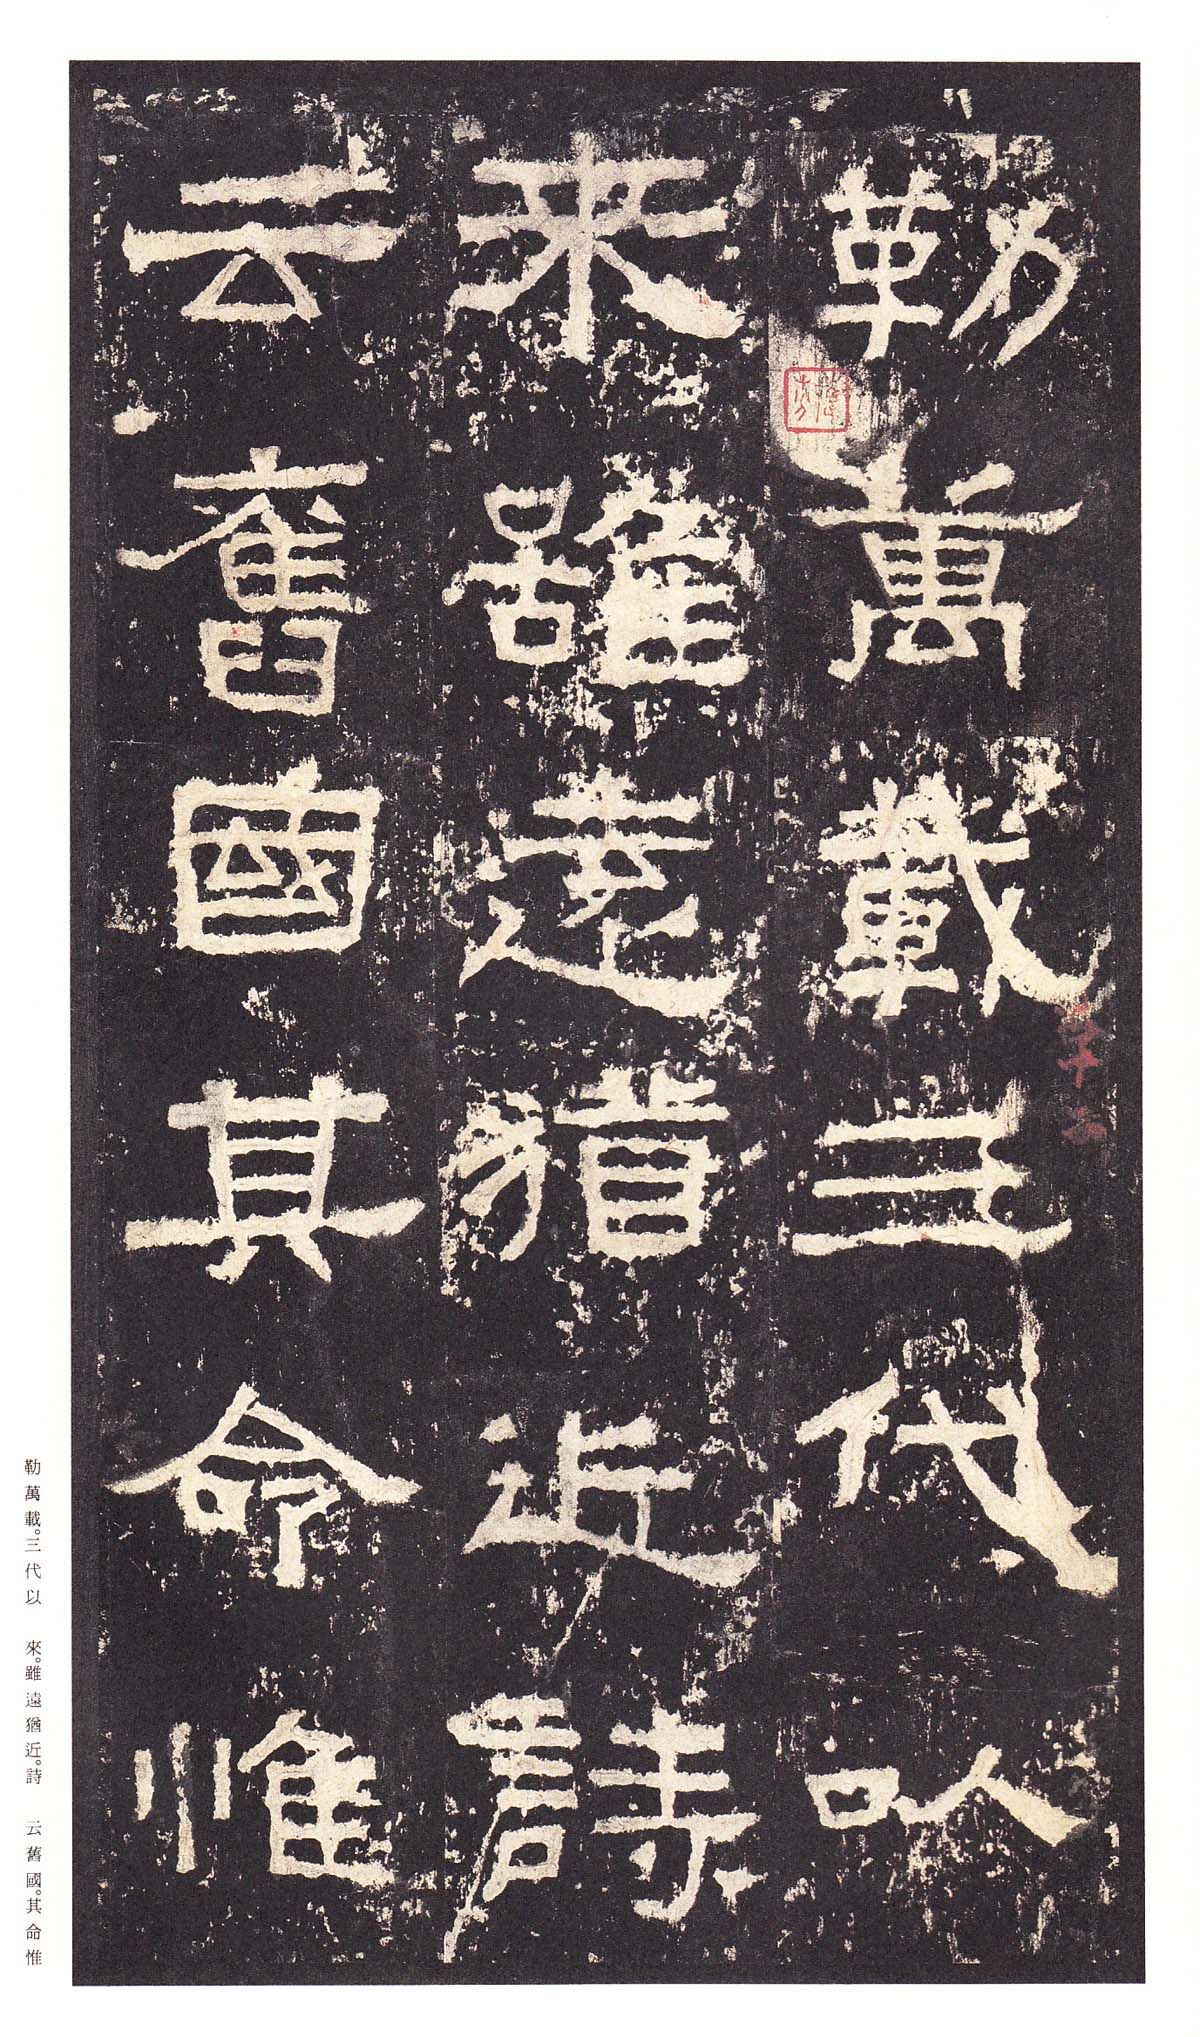 勒萬載三代以
來雖遠猶近詩
云舊國其命惟
勒萬載。三代以　來。雖遠猶近。詩　云舊國。其命惟